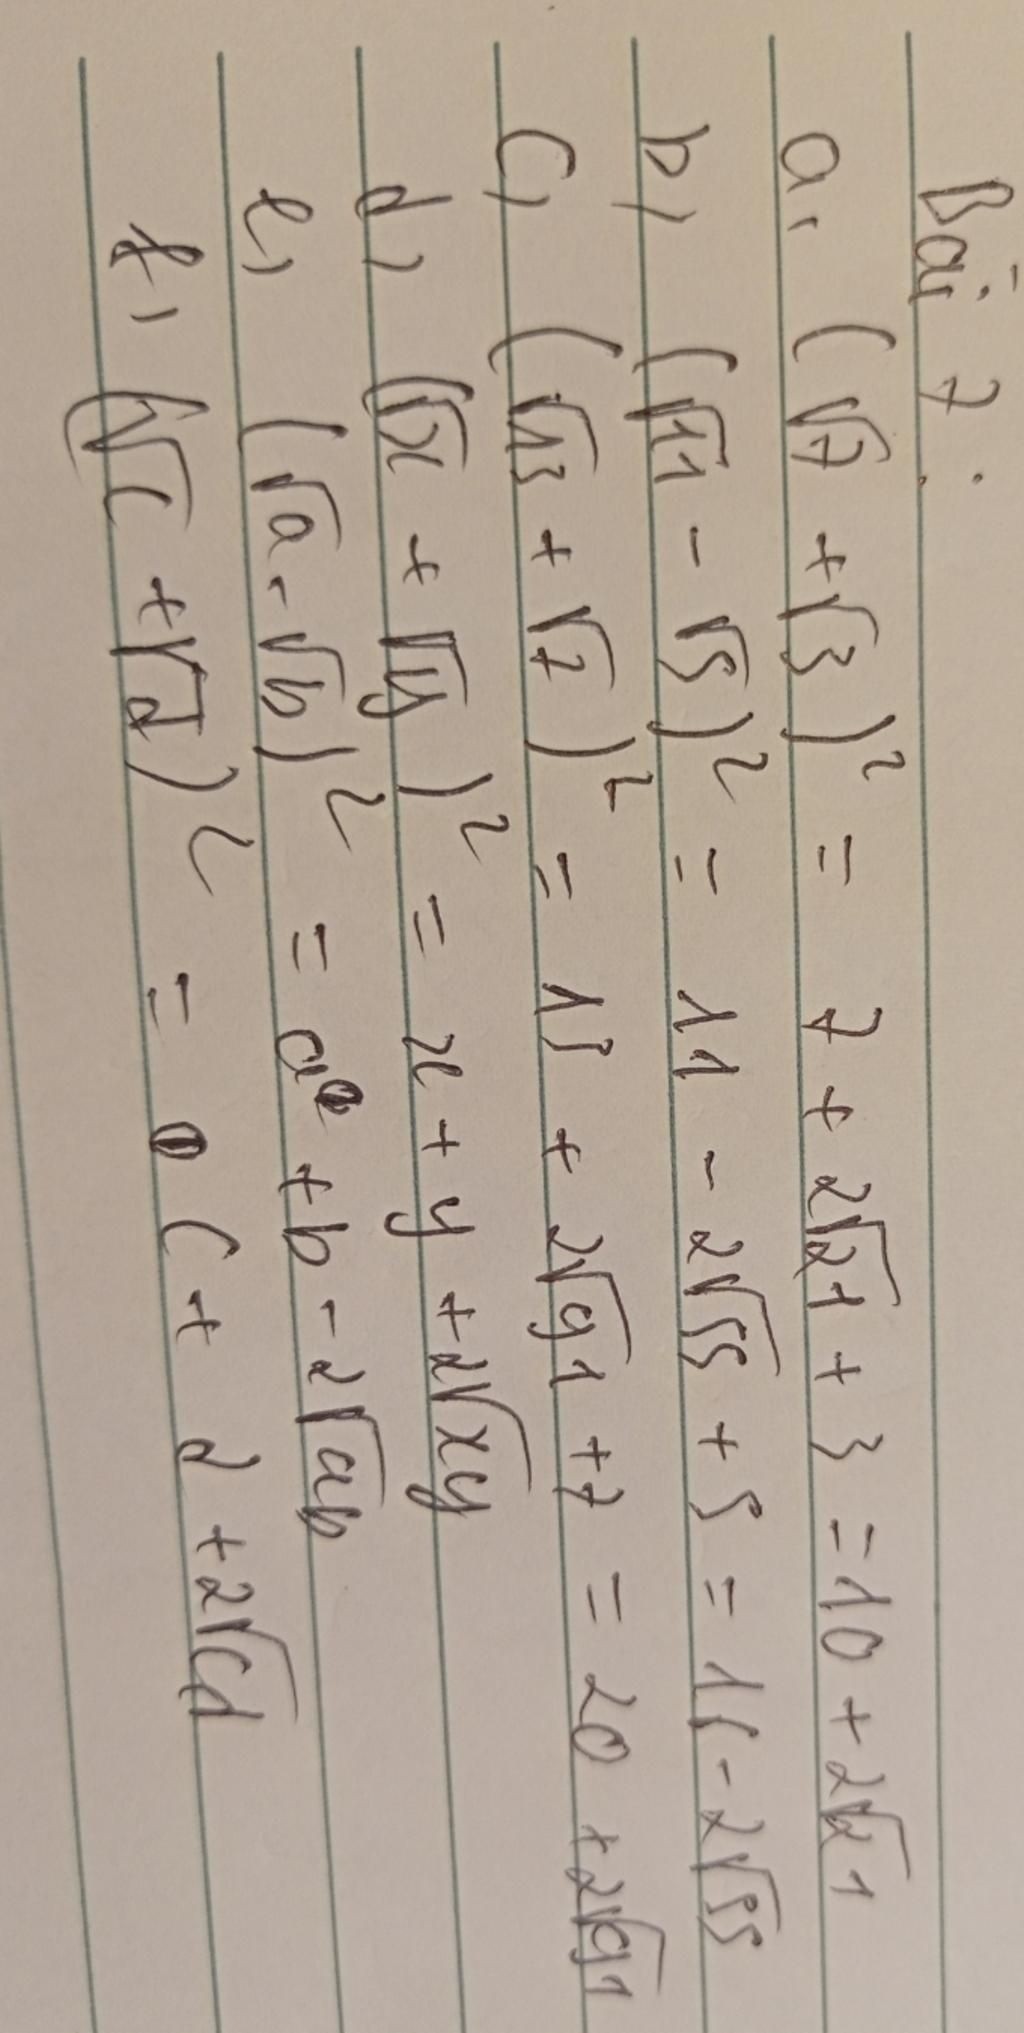 Bài 7:
a, (√7 + √3)² = 7 + 2√21 + 3 = 10 + 2√21
b, (√11 - √5)² = 11 - 2√55 + 5 = 16 - 2√55
c, (√13 + √7)² = 13 + 2√91 + 7 = 20 + 2√91
d, (√x + √y)² = x + y + 2√xy
e, (√a - √b)² = a + b - 2√ab
f, (√c + √d)² = c + d + 2√cd